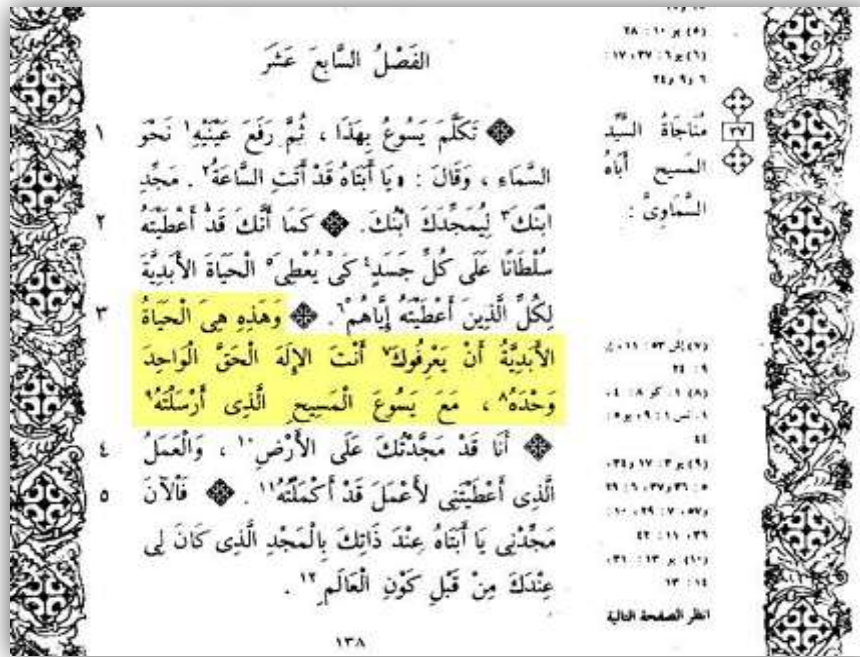 الفَصْلُ السَّابِعَ عَشَرَ
١ ۞ تَكَلَّمَ يَسُوعُ بِهَذَا ، ثُمَّ رَفَعَ عَيْنَيْهِ١ نَحْوَ
السَّمَاءِ ، وَقَالَ : «يَا أَبَتَاهُ قَدْ أَتَتِ السَّاعَةُ٢ . مَجِّدِ
٢ ابْنَكَ٣ لِيُمَجِّدَكَ ابْنُكَ. ۞ كَمَا أَنَّكَ قَدْ أَعْطَيْتَهُ
سُلْطَانًا عَلَى كُلِّ جَسَدٍ٤ كَىْ يُعْطِىَ٥ الْحَيَاةَ الأَبَدِيَّةَ
٣ لِكُلِّ الَّذِينَ أَعْطَيْتَهُ إِيَّاهُمْ٦. ۞ وَهَذِهِ هِىَ الْحَيَاةُ
الأَبَدِيَّةُ أَنْ يَعْرِفُوكَ٧ أَنْتَ الإِلَهَ الْحَقَّ الْوَاحِدَ
وَحْدَهُ٨ ، مَعَ يَسُوعَ الْمَسِيحِ الَّذِى أَرْسَلْتَهُ٩
٤ ۞ أَنَا قَدْ مَجَّدْتُكَ عَلَى الأَرْضِ١٠ ، وَالْعَمَلُ
٥ الَّذِى أَعْطَيْتَنِى لأَعْمَلَ قَدْ أَكْمَلْتُهُ١١ . ۞ فَالآنَ
مَجِّدْنِى يَا أَبَتَاهُ عِنْدَ ذَاتِكَ بِالْمَجْدِ الَّذِى كَانَ لِى
عِنْدَكَ مِنْ قَبْلِ كَوْنِ الْعَالَمِ١٢ .
١٣٨
(٥) يو ١٠ : ٢٨
(٦) يو ٦ : ٣٧ ، ١٧ :
٦ و ٩ و ٢٤
٣٧ مُنَاجَاةُ السَّيِّدِ
المَسيح أَبَاهُ
السَّمَاوِىَّ :
٩ : ٢٤
(٨) ١. كو ٨ : ٤ ،
٤٤
(٩) يو ٣ : ١٧ و ٣٤ ،
٣٩ ، ١١ : ٤٢
(١٠) يو ١٣ : ٣١ ،
١٤ : ١٣
انظر الصفحة التالية